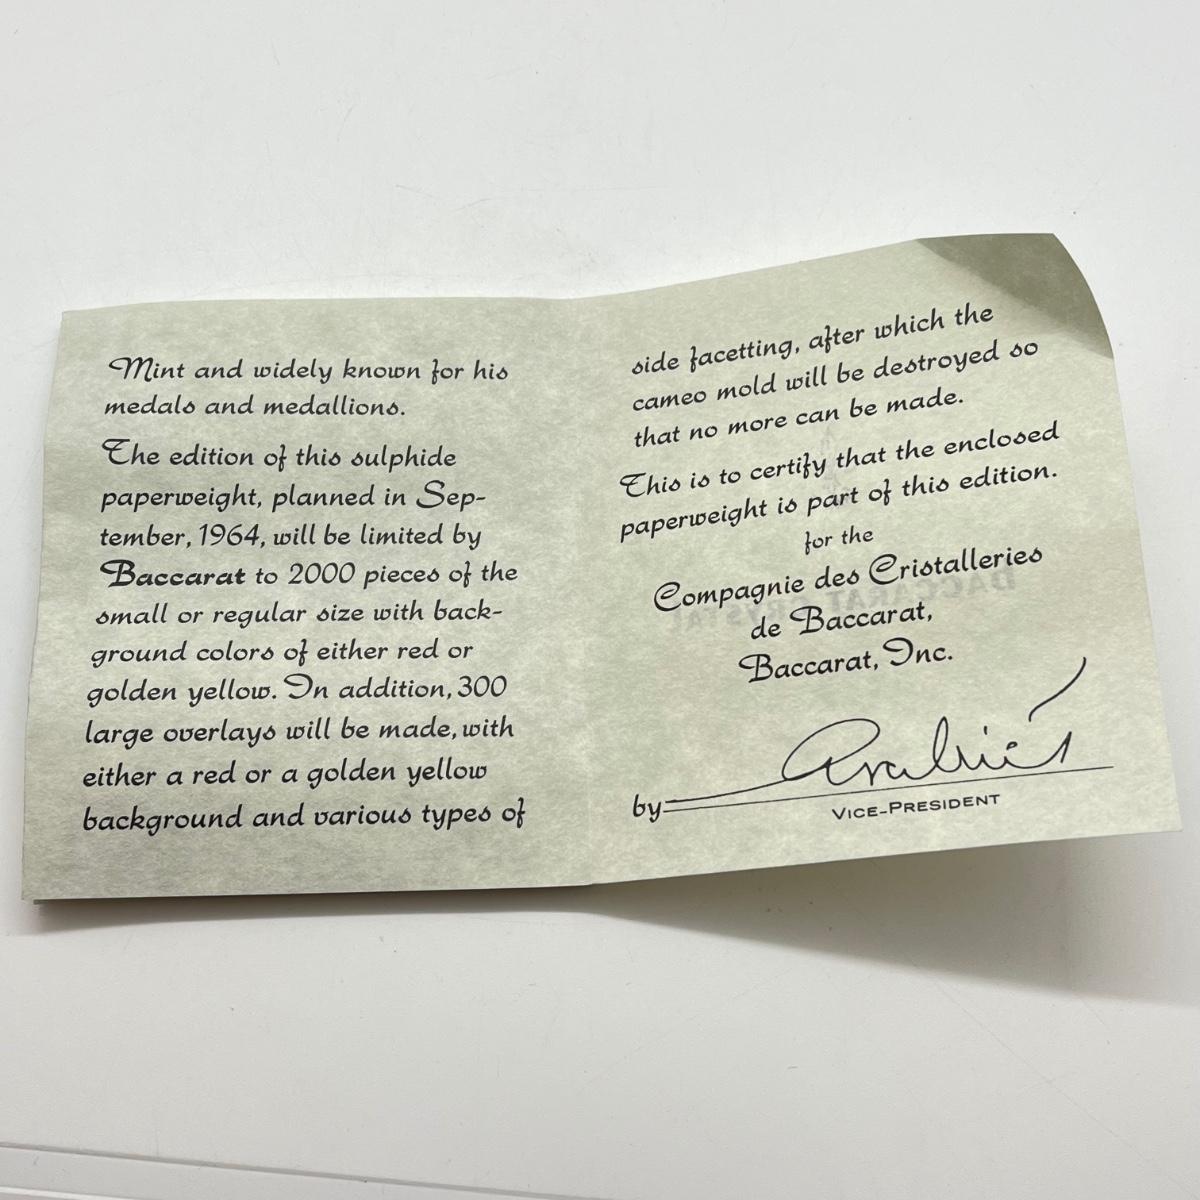 Mint and widely known for his
medals and medallions.
The edition of this sulphide
paperweight, planned in Sep-
tember, 1964, will be limited by
Baccarat to 2000 pieces of the
small or regular size with back-
ground colors of either red or
golden yellow. In addition, 300
large overlays will be made, with
either a red or a golden yellow
background and various types of
side facetting, after which the
cameo mold will be destroyed so
that no more can be made.
This is to certify that the enclosed
paperweight is part of this edition.
for the
Compagnie des Cristalleries
de Baccarat,
Baccarat, Inc.
by
VICE-PRESIDENT